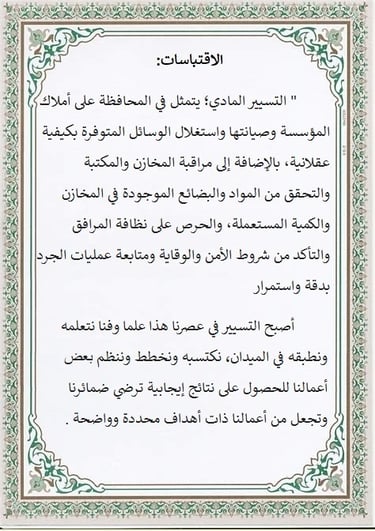 الاقتباسات:
" التسيير المادي؛ يتمثل في المحافظة على أملاك
المؤسسة وصيانتها واستغلال الوسائل المتوفرة بكيفية
عقلانية، بالإضافة إلى مراقبة المخازن والمكتبة
والتحقق من المواد والبضائع الموجودة في المخازن
والكمية المستعملة، والحرص على نظافة المرافق
والتأكد من شروط الأمن والوقاية ومتابعة عمليات الجرد
بدقة واستمرار
أصبح التسيير في عصرنا هذا علما وفنا نتعلمه
ونطبقه في الميدان، نكتسبه ونخطط وننظم بعض
أعمالنا للحصول على نتائج إيجابية ترضي ضمائرنا
وتجعل من أعمالنا ذات أهداف محددة وواضحة .